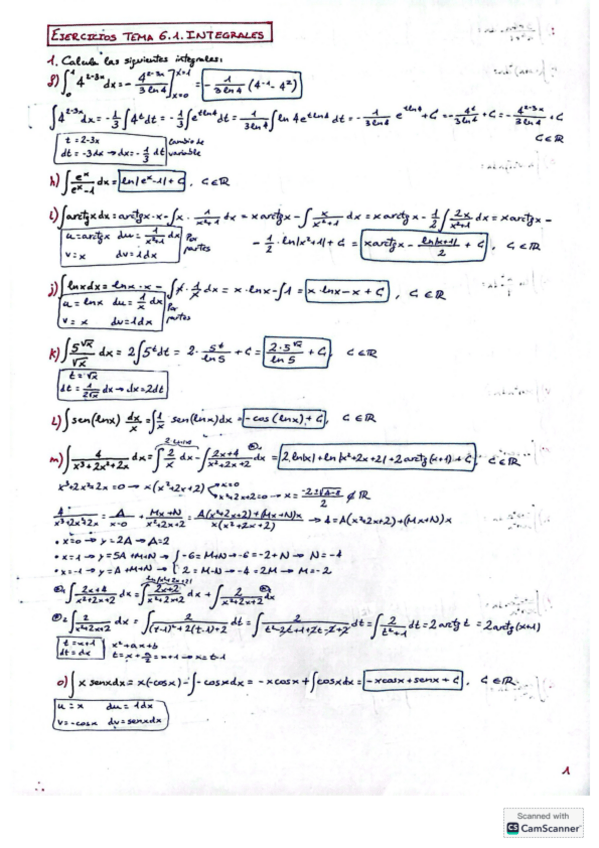 EJERCICIOS TEMA 6.1. INTEGRALES
1. Calcula las siguientes integrales:
g) ∫₀¹ 4^(2-3x) dx = - 4^(2-3x)/(3 ln 4) ]x=1 x=0 = - 1/(3 ln 4) (4^-1 - 4^2)
∫4^(2-3x) dx = - 1/3 ∫4^t dt = - 1/3 ∫e^(t ln 4) dt = - 1/(3 ln 4) ∫ ln 4 e^(t ln 4) dt = - 1/(3 ln 4) e^(t ln 4) + C = - 4^t/(3 ln 4) + C = - 4^(2-3x)/(3 ln 4) + C
C ∈ ℝ
t = 2-3x
dt = -3dx → dx = - 1/3 dt
cambio de variable
h) ∫ e^x/(e^x-1) dx = ln|e^x-1| + C, C ∈ ℝ
i) ∫ arctgx dx = arctgx · x - ∫x · 1/(x²+1) dx = x arctgx - ∫ x/(x²+1) dx = x arctgx - 1/2 ∫ 2x/(x²+1) dx = x arctgx -
- 1/2 · ln|x²+1| + C = x arctgx - + C, C ∈ ℝ
u = arctgx du = 1/(x²+1) dx
v = x dv = 1dx
Por partes
j) ∫ lnx dx = lnx · x - ∫ x · 1/x dx = x · lnx - ∫1 = x · lnx - x + C, C ∈ ℝ
u = lnx du = 1/x dx
v = x dv = 1dx
Por partes
k) ∫ 5^√x/√x dx = 2∫5^t dt = 2 · 5^t/ln 5 + C = 2·5^√x/ln 5 + C, C ∈ ℝ
t = √x
dt = 1/(2√x) dx → dx = 2dt
l) ∫ sen(lnx) dx/x = ∫ 1/x sen(lnx) dx = -cos(lnx) + C, C ∈ ℝ
m) ∫ 4/(x³+2x²+2x) dx = ∫ 2/x dx - ∫ (2x+4)/(x²+2x+2) dx = 2 ln|x| + ln|x²+2x+2| + 2 arctg(x+1) + C, C ∈ ℝ
x³+2x²+2x = 0 → x(x²+2x+2) x=0
x²+2x+2=0 → x = (-2±√4-8)/2 ∉ ℝ
4/(x³+2x²2x) = A/(x-0) + (Mx+N)/(x²+2x+2) = (A(x²+2x+2)+(Mx+N)x)/(x(x²+2x+2)) → 4 = A(x²+2x+2)+(Mx+N)x
• x=0 → y = 2A → A=2
• x=1 → y = 5A+M+N → { -6 = M+N → -6 = -2+N → N = -4
• x=-1 → y = A+M+N → { 2 = M-N → -4 = 2M → M = -2
∫ (2x+4)/(x²+2x+2) dx = ∫ (2x+2)/(x²+2x+2) dx + ∫ 2/(x²+2x+2) dx
∫ 2/(x²+2x+2) dx = ∫ 2/((t-1)²+2(t-1)+2) dt = ∫ 2/(t²-2t+1+2t-2+2) dt = ∫ 2/(t²+1) dt = 2 arctg t = 2 arctg(x+1)
t = x+1
dt = dx
x²+ax+b
t = x + a/2 = x+1 → x = t-1
o) ∫ x senx dx = x(-cosx) - ∫ -cosx dx = -x cosx + ∫ cosx dx = -x cosx + senx + C, C ∈ ℝ
u = x du = 1dx
v = -cosx dv = senx dx
1
Scanned with
CS CamScanner